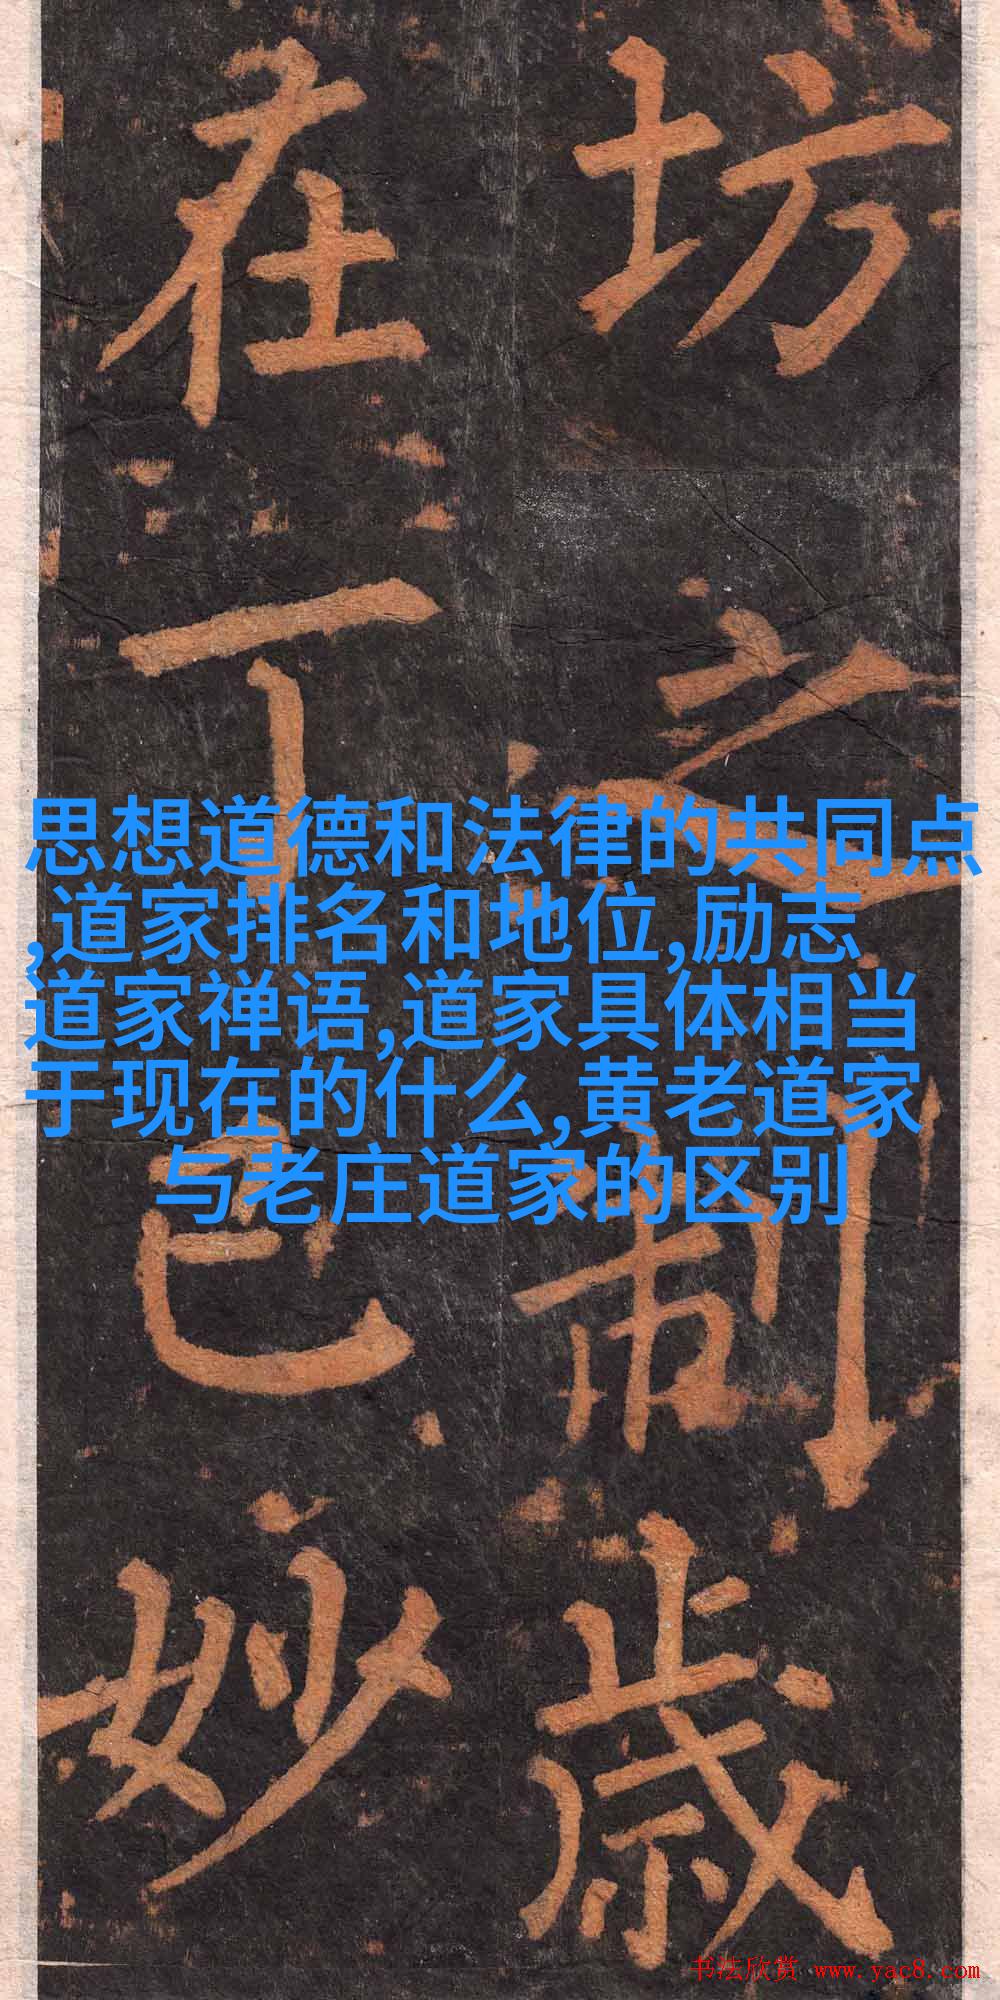 坊之制歲
在丁巳妙
思想道德和法律的共同点
,道家排名和地位,励志
道家禅语,道家具体相当
于现在的什么,黄老道家
与老庄道家的区别
书法欣赏 www.yac8.com